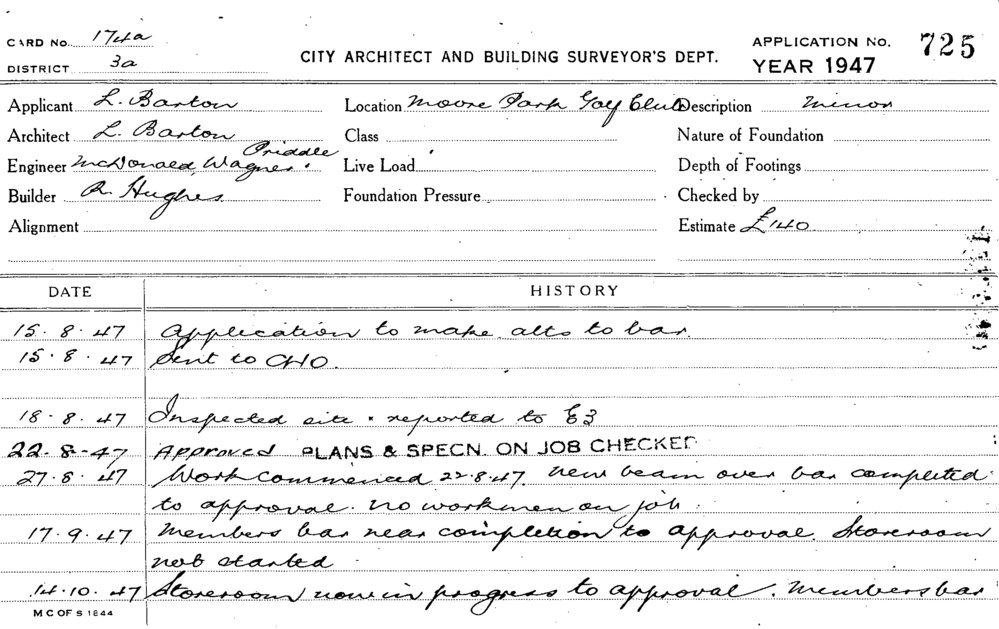 CARD No. 174a
DISTRICT 3a
CITY ARCHITECT AND BUILDING SURVEYOR'S DEPT.
APPLICATION No. 725
YEAR 1947
Applicant L. Barton Location Moore Park Golf Club Description minor
Architect L. Barton Class Nature of Foundation
Priddle
Engineer McDonald, Wagner. Live Load Depth of Footings
Builder R. Hughes Foundation Pressure Checked by
Alignment Estimate £140
DATE HISTORY
15.8.47 Application to make alts to bar.
15.8.47 Sent to CHO.
18.8.47 Inspected site & reported to E3
22-8-47 Approved PLANS & SPECN. ON JOB CHECKED
27.8.47 Work commenced 22.8.47. New beam over bar completed
to approval. No workmen on job.
17.9.47 Members bar near completion to approval. Storeroom
not started
14.10.47 Storeroom now in progress to approval. Members bar
M C OF S 1844